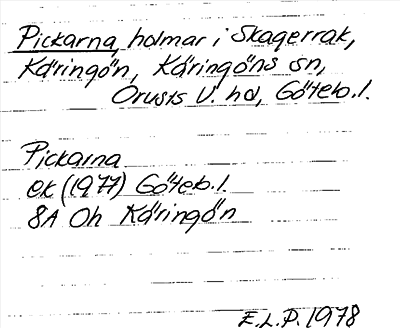 Pickarna, holmar i Skagerrak,
Käringön, Käringöns sn,
Orusts V. hd, Göteb. l.
Pickarna
ek (1977) Göteb. l.
8A Oh Käringön
E.L.P. 1978